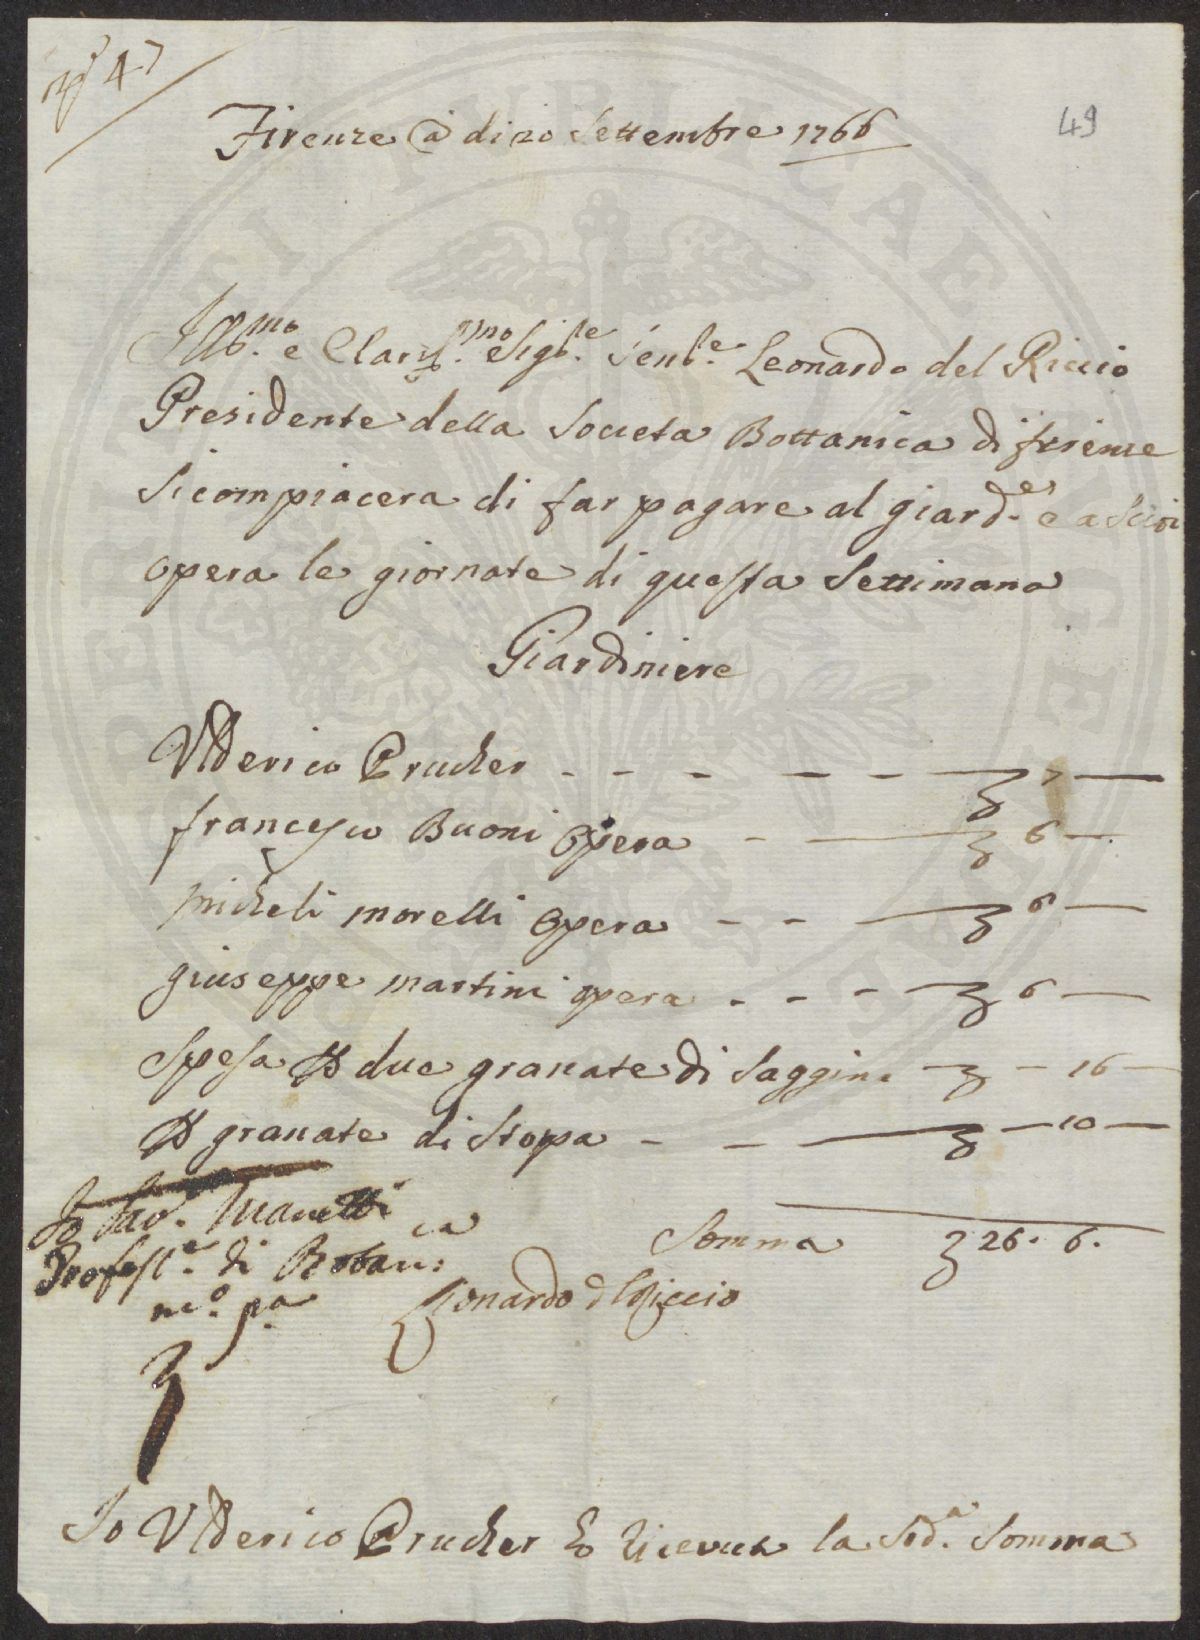 N.º 47
49
Firenze @ di 20 Settembre 1766
Ill.mo e Claris.mo Sig.re Sen.re Leonardo del Riccio
Presidente della Societa Bottanica di firenze
si compiacera di far pagare al giard.e e a suoi
opera le giornate di questa Settimana
Giardiniere
Ulderico Prucker - - - - - £ 7 —
francesco Buoni opera - — £ 6 —
micheli morelli opera - - — £ 6 —
giuseppe martini opera - - - — £ 6 —
Spesa p due granate di Saggina — £ — 16 —
p granate di Stopa - — — £ — 10 —
Io Sav. Manetti
Somma £ 26. 6.
Profess.e di Botanica
m.o p.a
Leonardo d Riccio
Io Ulderico Prucker ho ricevuta la Sod.a Somma